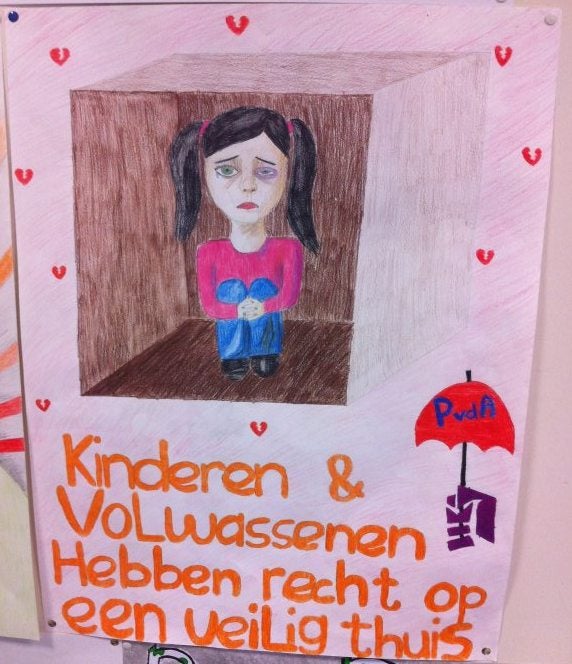 PvdA
Kinderen &
Volwassenen
Hebben recht op
een veilig thuis